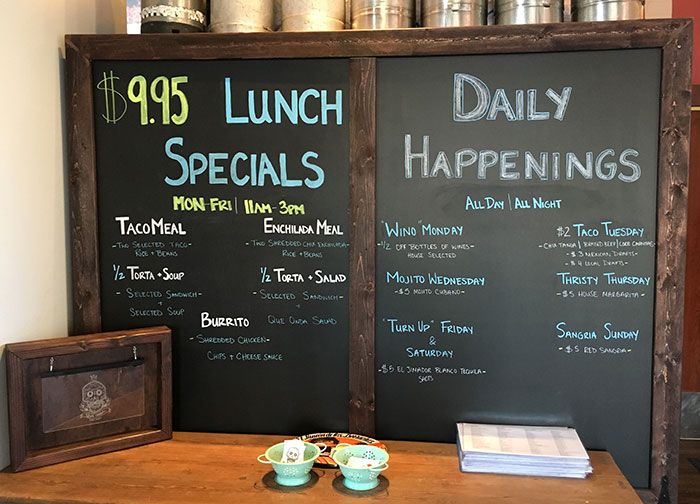 $9.95 LUNCH
SPECIALS
MON-FRI | 11AM-3PM
TACO MEAL
-TWO SELECTED TACO
RICE + BEANS
ENCHILADA MEAL
-TWO SHREDDED CHIX ENCHILADA-
RICE + BEANS
1/2 TORTA + SOUP
- SELECTED SANDWICH -
+
SELECTED SOUP
1/2 TORTA + SALAD
- SELECTED SANDWICH -
+
QUE ONDA SALAD
BURRITO
- SHREDDED CHICKEN
CHIPS + CHEESE SAUCE
DAILY
HAPPENINGS
ALL DAY | ALL NIGHT
"WINO" MONDAY
-1/2 OFF BOTTLES OF WINES-
HOUSE SELECTED
$2 TACO TUESDAY
- CHIX TINGA | BRAISED BEEF | CARNITAS -
- $3 MEXICAN DRAFTS -
- $4 LOCAL DRAFTS
MOJITO WEDNESDAY
- $5 MOJITO CUBANO -
THRISTY THURSDAY
- $5 HOUSE MARGARITA -
"TURN UP" FRIDAY
&
SATURDAY
- $5 EL JIMADOR BLANCO TEQUILA -
SHOTS
SANGRIA SUNDAY
- $5 RED SANGRIA -